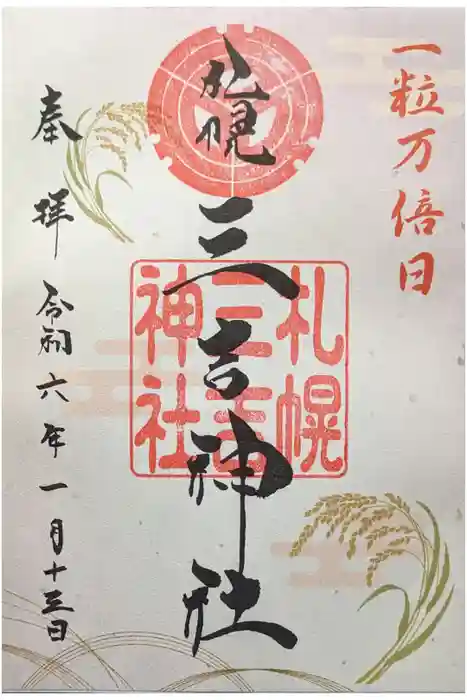 一粒万倍日
札幌
三吉神社
札幌
三吉
神社
奉拝 令和六年一月十三日